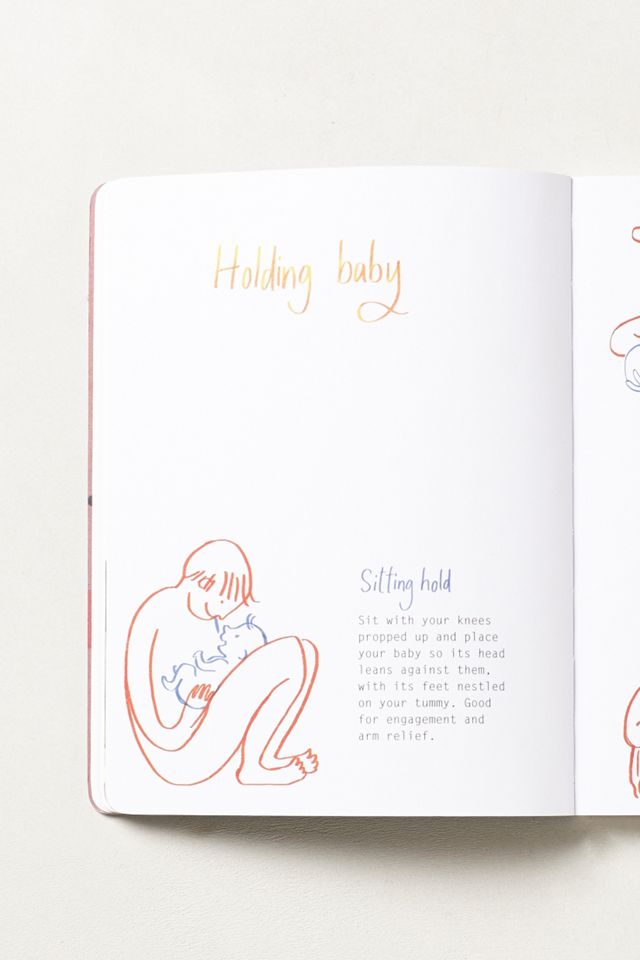 Holding baby
Sitting hold
Sit with your knees
propped up and place
your baby so its head
leans against them,
with its feet nestled
on your tummy. Good
for engagement and
arm relief.